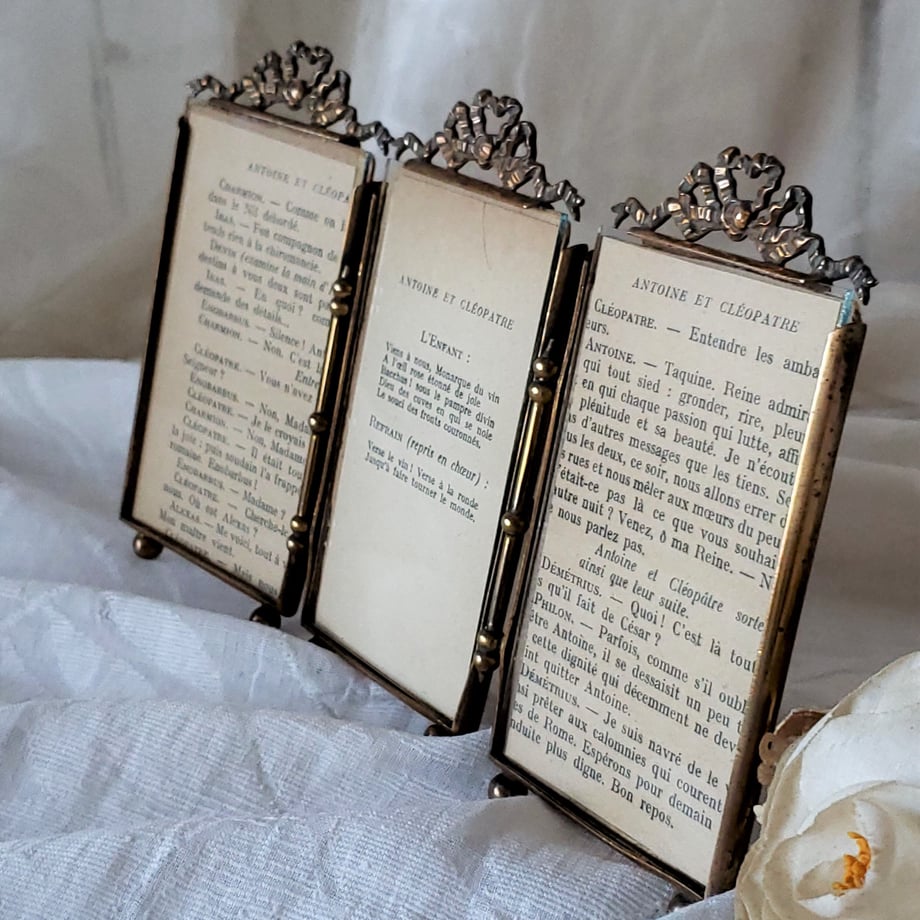 ANTOINE ET CLÉOPA
CHARMION. — Comme on
dans le Nil débordé.
IRAS. — Fou compagnon de
tends rien à la chiromancie.
DEVIN (examine la main d'
destins à vous deux sont
IRAS. — En quoi?
demande des détails...
ENOBARBUS. — Silence!
CHARMION. — Non. C'est
Entre
CLÉOPATRE. — Vous n'avez
Seigneur?
ENOBARBUS. — Non, Mada
CLÉOPATRE. — Je le croyais
CHARMION. — Non, Madame
CLÉOPATRE. — Il était tou
la joie; puis soudain l'a frappé
romaine. Enobarbus!
ENOBARBUS. — Madame?
CLÉOPATRE. — Cherche-le
nous. Où est Alexas?
ALEXAS. — Me voici, tout à
Mon maître vient.
CLÉOPATRE. — Mais nous
ANTOINE ET CLÉOPATRE
L'ENFANT :
Viens à nous, Monarque du vin
A l'œil rose étonné de joie
Bacchus! sous le pampre divin
Dieu des cuves en qui se noie
Le souci des fronts couronnés.
REFRAIN (repris en chœur) :
Verse le vin! Verse à la ronde
Jusqu'à faire tourner le monde.
ANTOINE ET CLÉOPATRE
CLÉOPATRE. — Entendre les amba
eurs.
ANTOINE. — Taquine. Reine admir
qui tout sied : gronder, rire, pleu
en qui chaque passion qui lutte, affi
plénitude et sa beauté. Je n'écout
d'autres messages que les tiens. Se
us les deux, ce soir, nous allons errer d
s rues et nous mêler aux mœurs du peu
'était-ce pas là ce que vous souhai
autre nuit? Venez, ô ma Reine. — N
nous parlez pas.
Antoine et Cléopâtre sorte
ainsi que leur suite.
DÉMÉTRIUS. — Quoi! C'est là tout
s qu'il fait de César?
PHILON. — Parfois, comme s'il oubl
être Antoine, il se dessaisit un peu t
cette dignité qui décemment ne dev
nt quitter Antoine.
DÉMÉTRIUS. — Je suis navré de le
si prêter aux calomnies qui courent
es de Rome. Espérons pour demain
nduite plus digne. Bon repos.